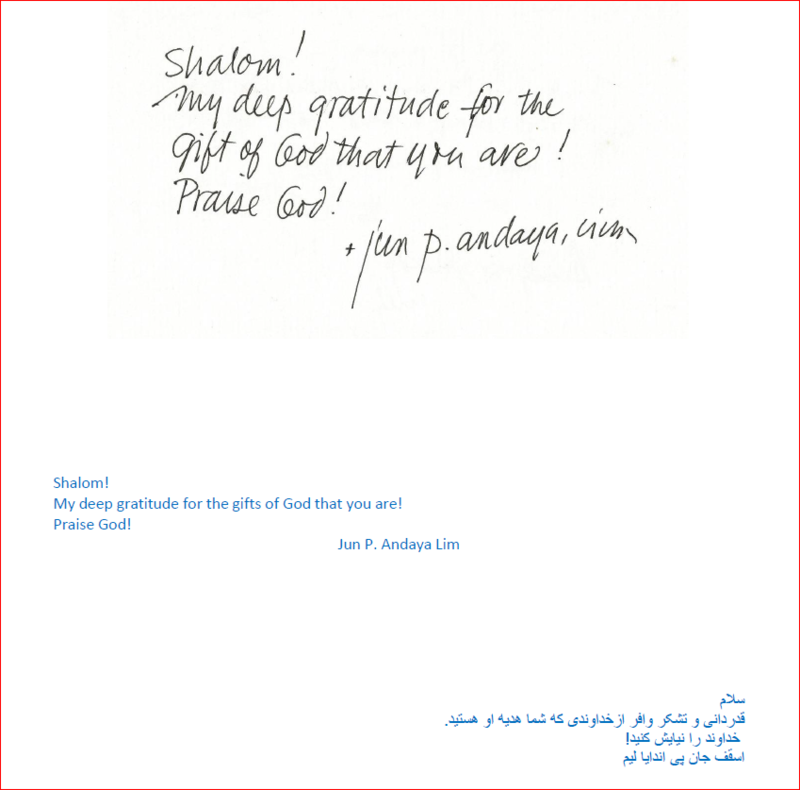 Shalom!
My deep gratitude for the
gift of God that you are!
Praise God!
+ jun p. andaya, cicm
Shalom!
My deep gratitude for the gifts of God that you are!
Praise God!
Jun P. Andaya Lim
سلام
قدردانی و تشکر وافر ازخداوندی که شما هدیه او هستید.
خداوند را نیایش کنید!
اسقف جان پی اندایا لیم